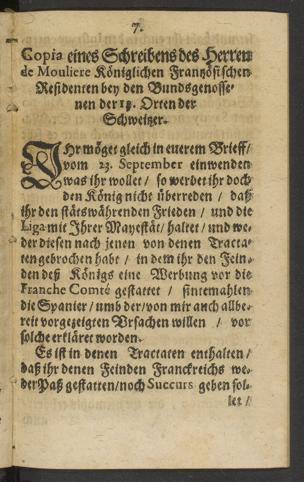 7.
Copia eines Schreibens des Herren
de Mouliere Königlichen Französischen
Residenten bey den Bundsgenosse-
nen der 13. Orten der
Schweitzer.
IHr möget gleich in euerem Brieff /
vom 23. September einwenden
was ihr wollet / so werdet ihr doch
den König nicht überreden / daß
ihr den stäts währenden Frieden / und die
Liga mit Ihrer Mayestät / haltet / und we-
der diesen nach jenen von denen Tracta-
ten gebrochen habt / in dem ihr den Fein-
den deß Königs eine Werbung vor die
Franche Comté gestattet / sintemahlen
die Spanier / umb der / von mir auch allbe-
reit vorgezeigten Ursachen willen / vor
solche erkläret worden.
Es ist in denen Tractaten enthalten /
daß ihr denen Feinden Franckreichs we-
der Paß gestatten / noch Succurs geben sol-
let /